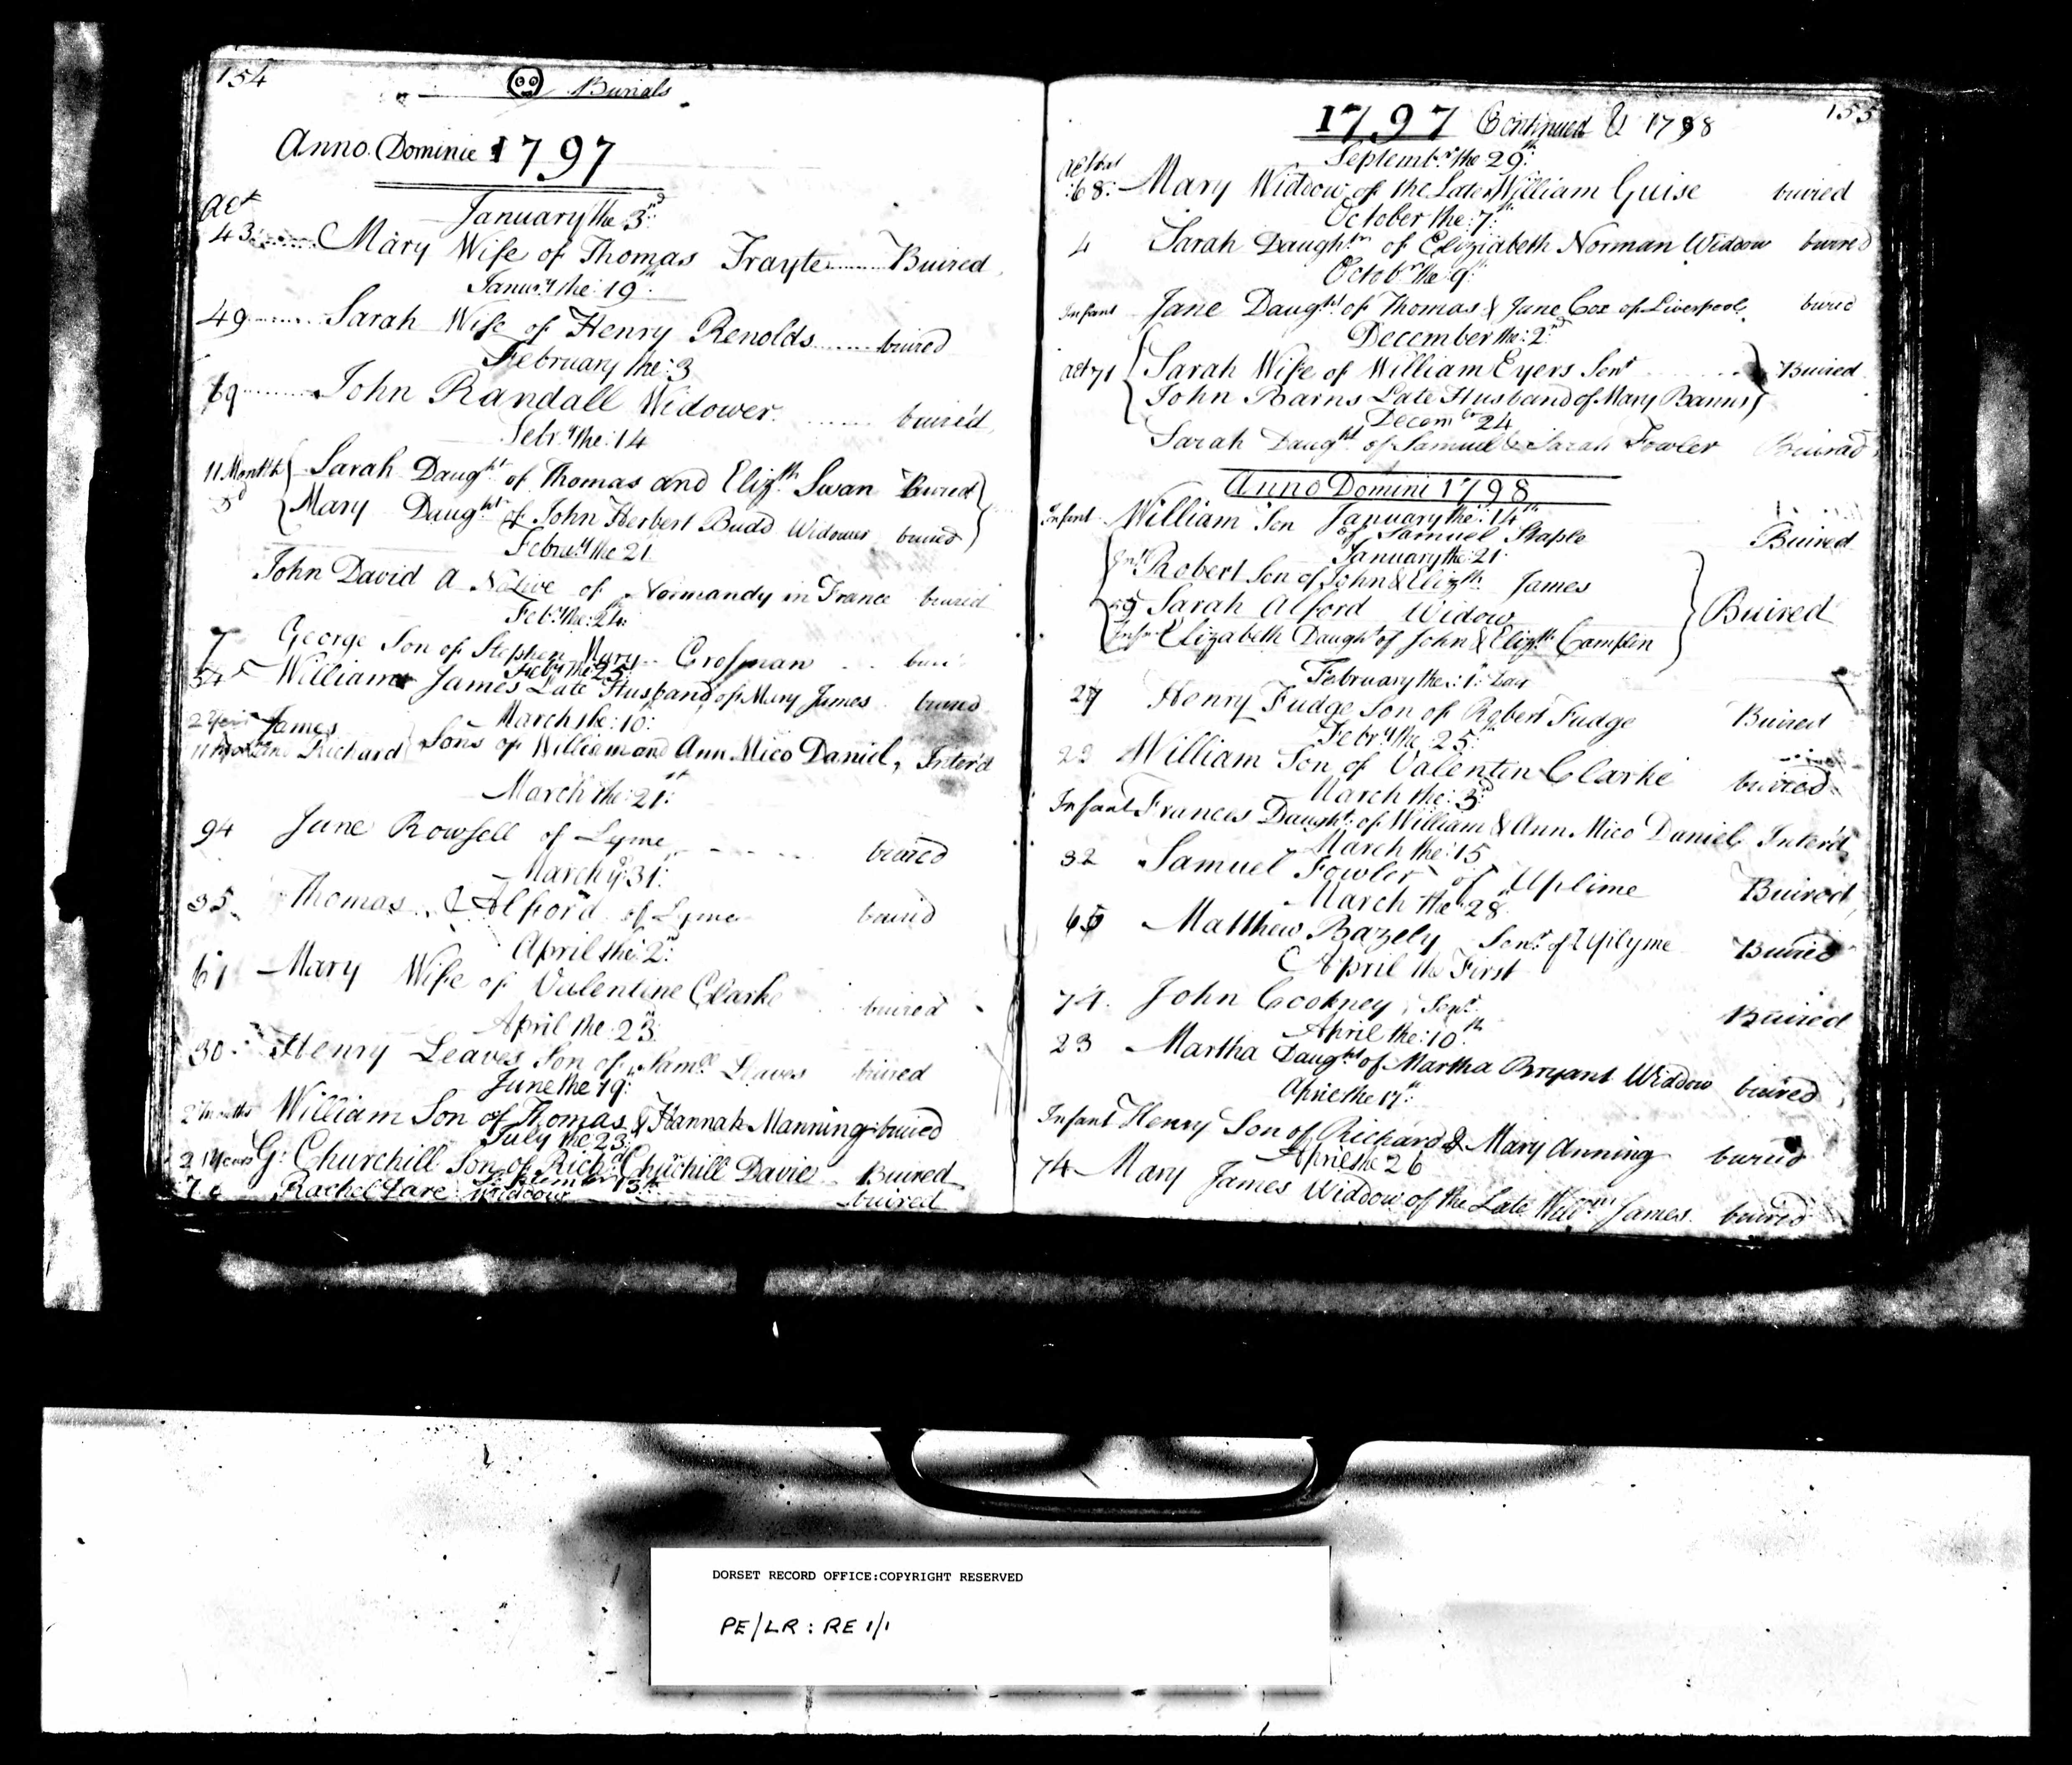 154
Burials
Anno. Dominie 1797
aet
January the 3rd
43 Mary Wife of Thomas Trayte Buired
Janury the 19th
49 Sarah Wife of Henry Renolds buired
February the: 3
69 John Randall Widower. buired
Febry the: 14
11 Months Sarah Daught of Thomas and Elizth Swan Buired
Mary Daught of John Herbert Budd Widower buried
Febry the 21
John David a Native of Normandy in France buried
Feby the: 24th
7 George Son of Stephen Mary Crosman
Feby the 25
54 William James Late Husband of Mary James buried
March the: 10:
James
Richard Sons of William and Ann Mico Daniel, Inter'd
March the: 21st
94 Jane Rowsell of Lyme buired
March ye 31:
35 Thomas Alford of Lyme buried
April the: 2nd
61 Mary Wife of Valentine Clarke buired
April the: 23
30 Henry Leaves Son of Samll Leaves buired
June the 19:
2 Months William Son of Thomas & Hannah Manning buired
July the 23:
21 Years G: Churchill Son of Richd Churchill Davie Buired
September 13th
Rachel Widdow buired
155
1797 Continued & 1798
Septembr the 29th
68: Mary Widdow of the Late William Guise buired
October the: 7th
4 Sarah Daughtr of Eliziabeth Norman Widdow buired
Octobr the: 9th
Infant Jane Daught of Thomas & Jane Cox of Liverpool buired
December the: 2nd
aet 71 Sarah Wife of William Eyers Senr Buired
John Barns Late Husband of Mary Barns
Decembr 24
Sarah Daught of Samuel & Sarah Fowler Buirad
Anno Domini 1798
January the: 14th
Infant William Son of Samuel Staple Buired
January the: 21
Inft Robert Son of John & Elizth James
Sarah Alford Widow Buired
Infnt Elizabeth Daught of John & Elizth Camplin
February the: 1: Day
27 Henry Fudge Son of Robert Fudge Buired
Febry the 25th
23 William Son of Valentin Clarke buired
March the: 3d
Infant Frances Daught of William & Ann Mico Daniel Interd
March the: 15
32 Samuel Fowler of Uplime Buired
March the 28
Matthew Bazely Senr of Uplyme Buired
April the First
74. John Cookney Senr Buired
April the: 10th
23 Martha Daught of Martha Bryant Widdow buired
Aprie the 17th
Infant Henry Son of Richard & Mary Anning buried
April the 26
74 Mary James Widdow of the Late Willm James. buired
DORSET RECORD OFFICE:COPYRIGHT RESERVED
PE/LR : RE 1/1